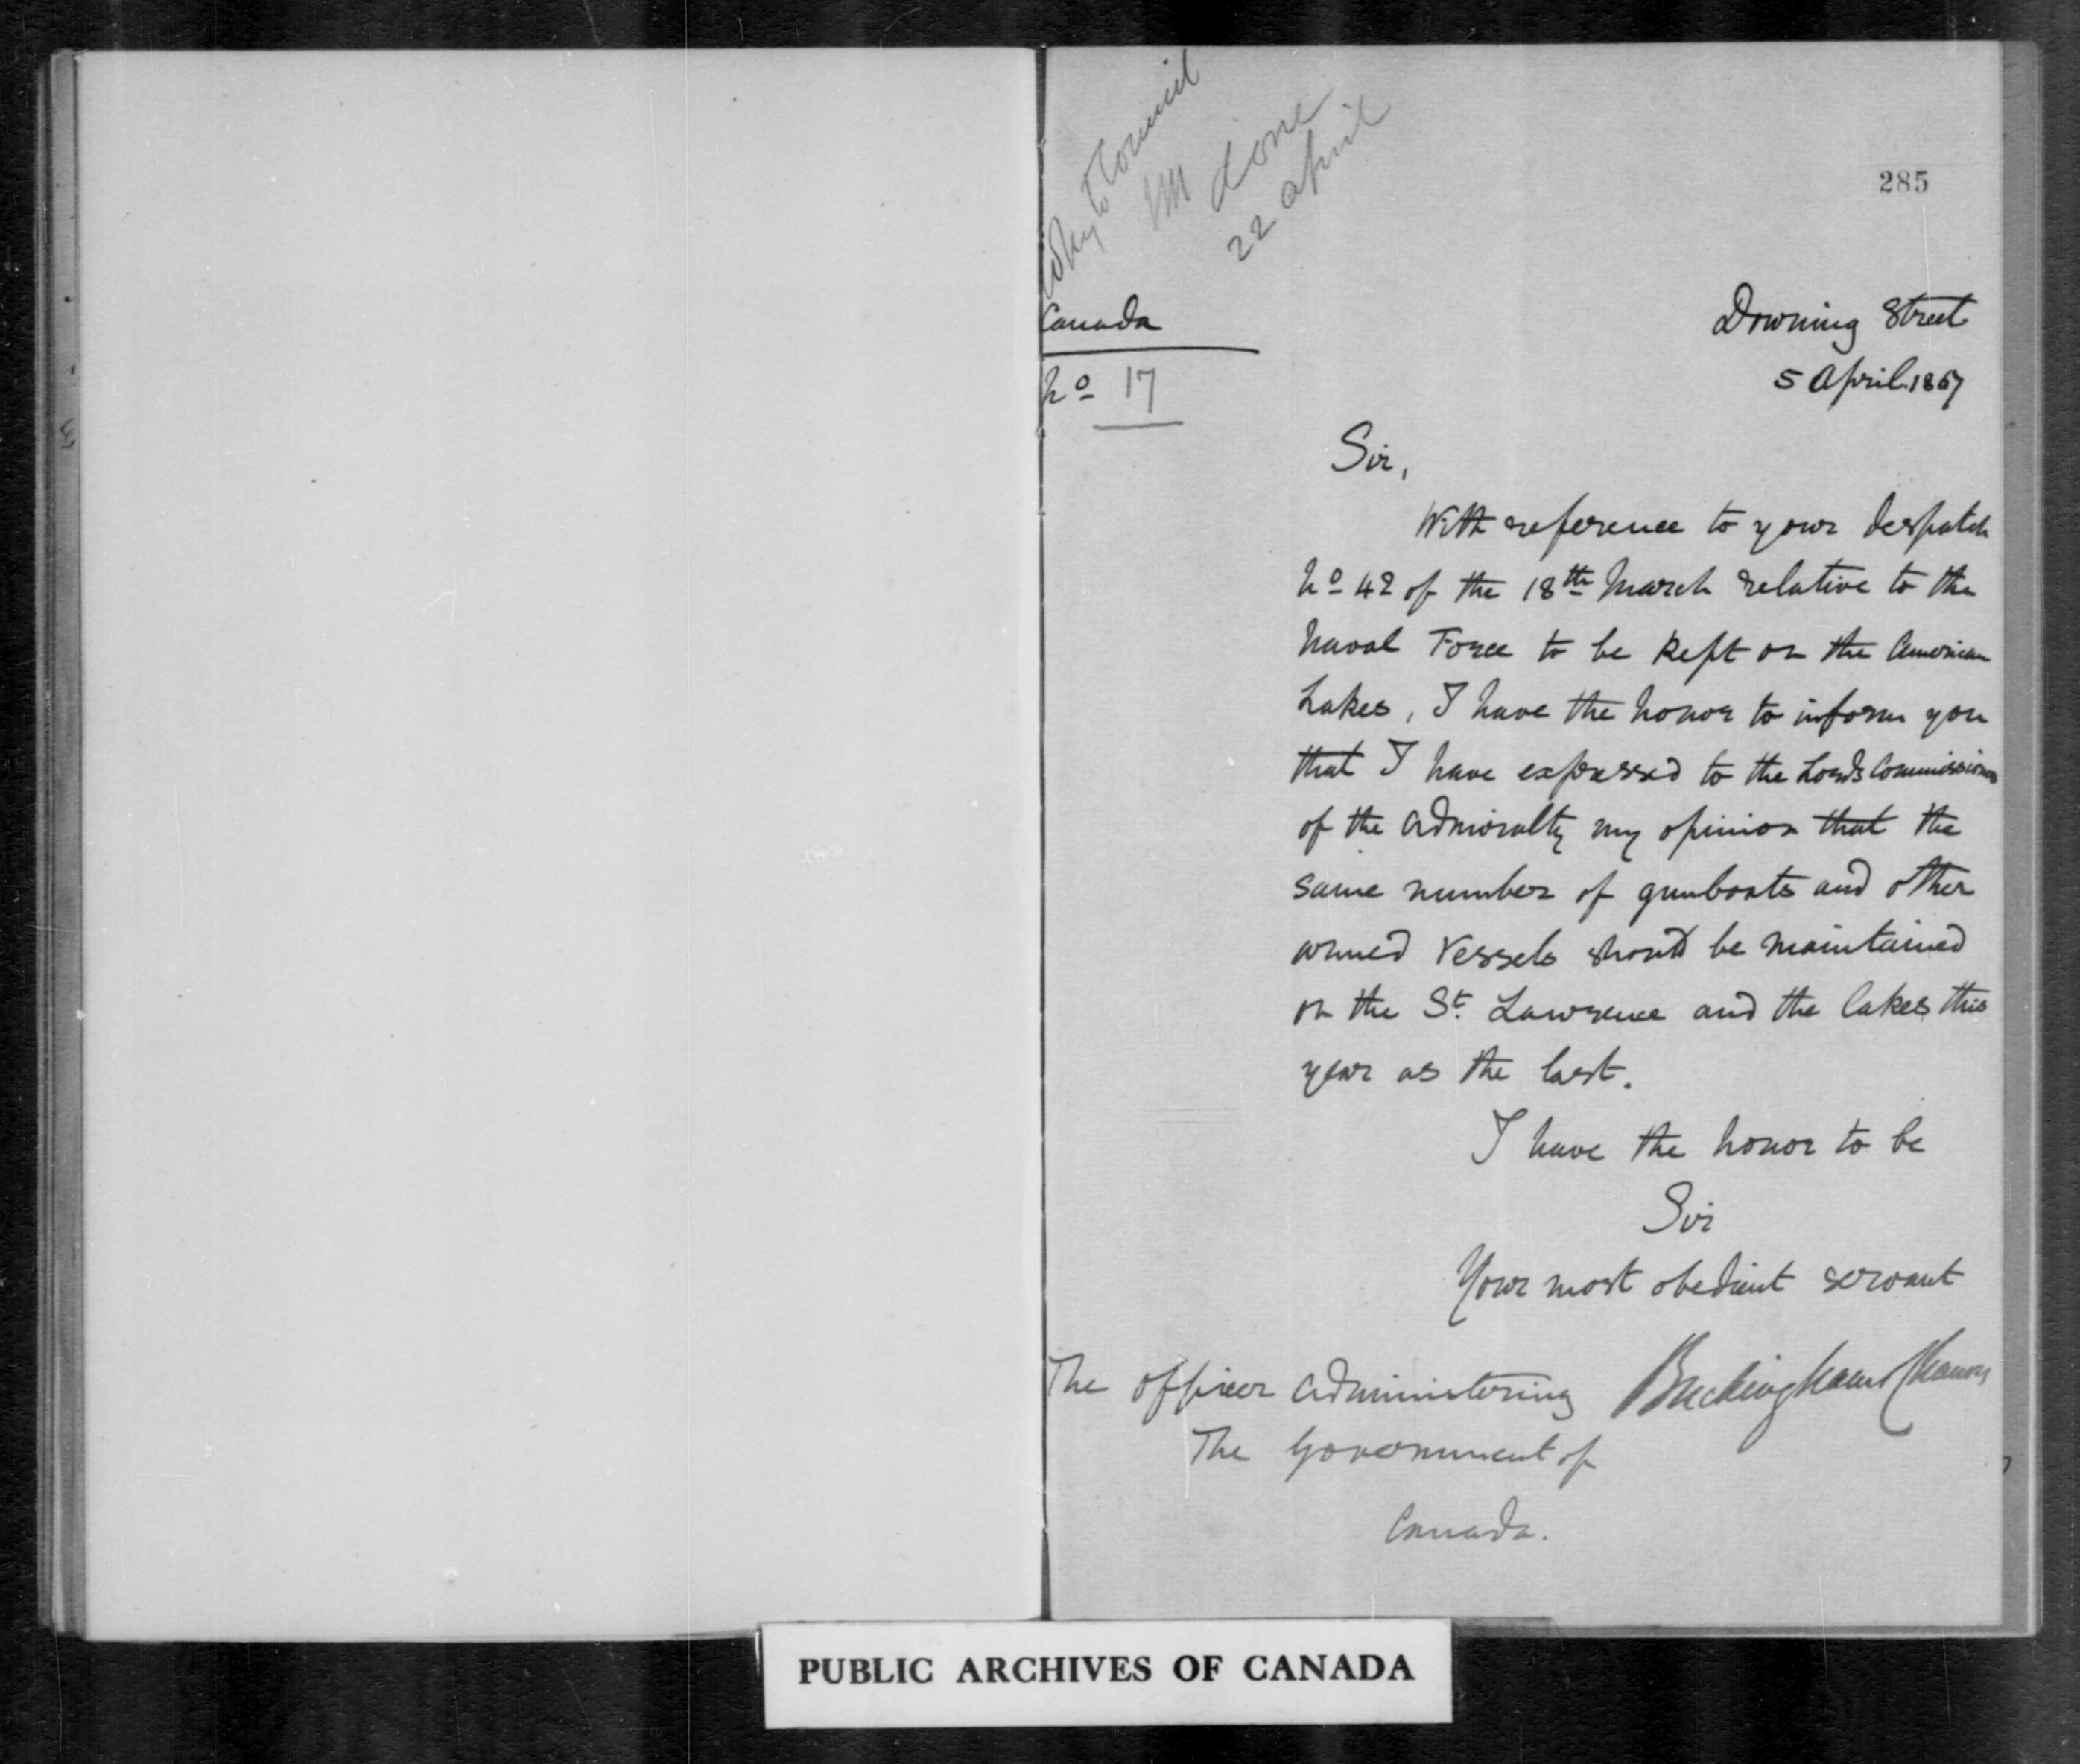 Copy to Council
done
22 April
285
Canada
No 17
Downing Street
5 April 1867
Sir,
With reference to your despatch
No 42 of the 18th March relative to the
Naval Force to be kept on the American
Lakes, I have the honor to inform you
that I have expressed to the Lords Commissioners
of the Admiralty my opinion that the
same number of gunboats and other
armed vessels should be maintained
on the St. Lawrence and the lakes this
year as the last.
I have the honor to be
Sir
Your most obedient servant
Buckingham & Chandos
The Officer Administering
The Government of
Canada.
PUBLIC ARCHIVES OF CANADA